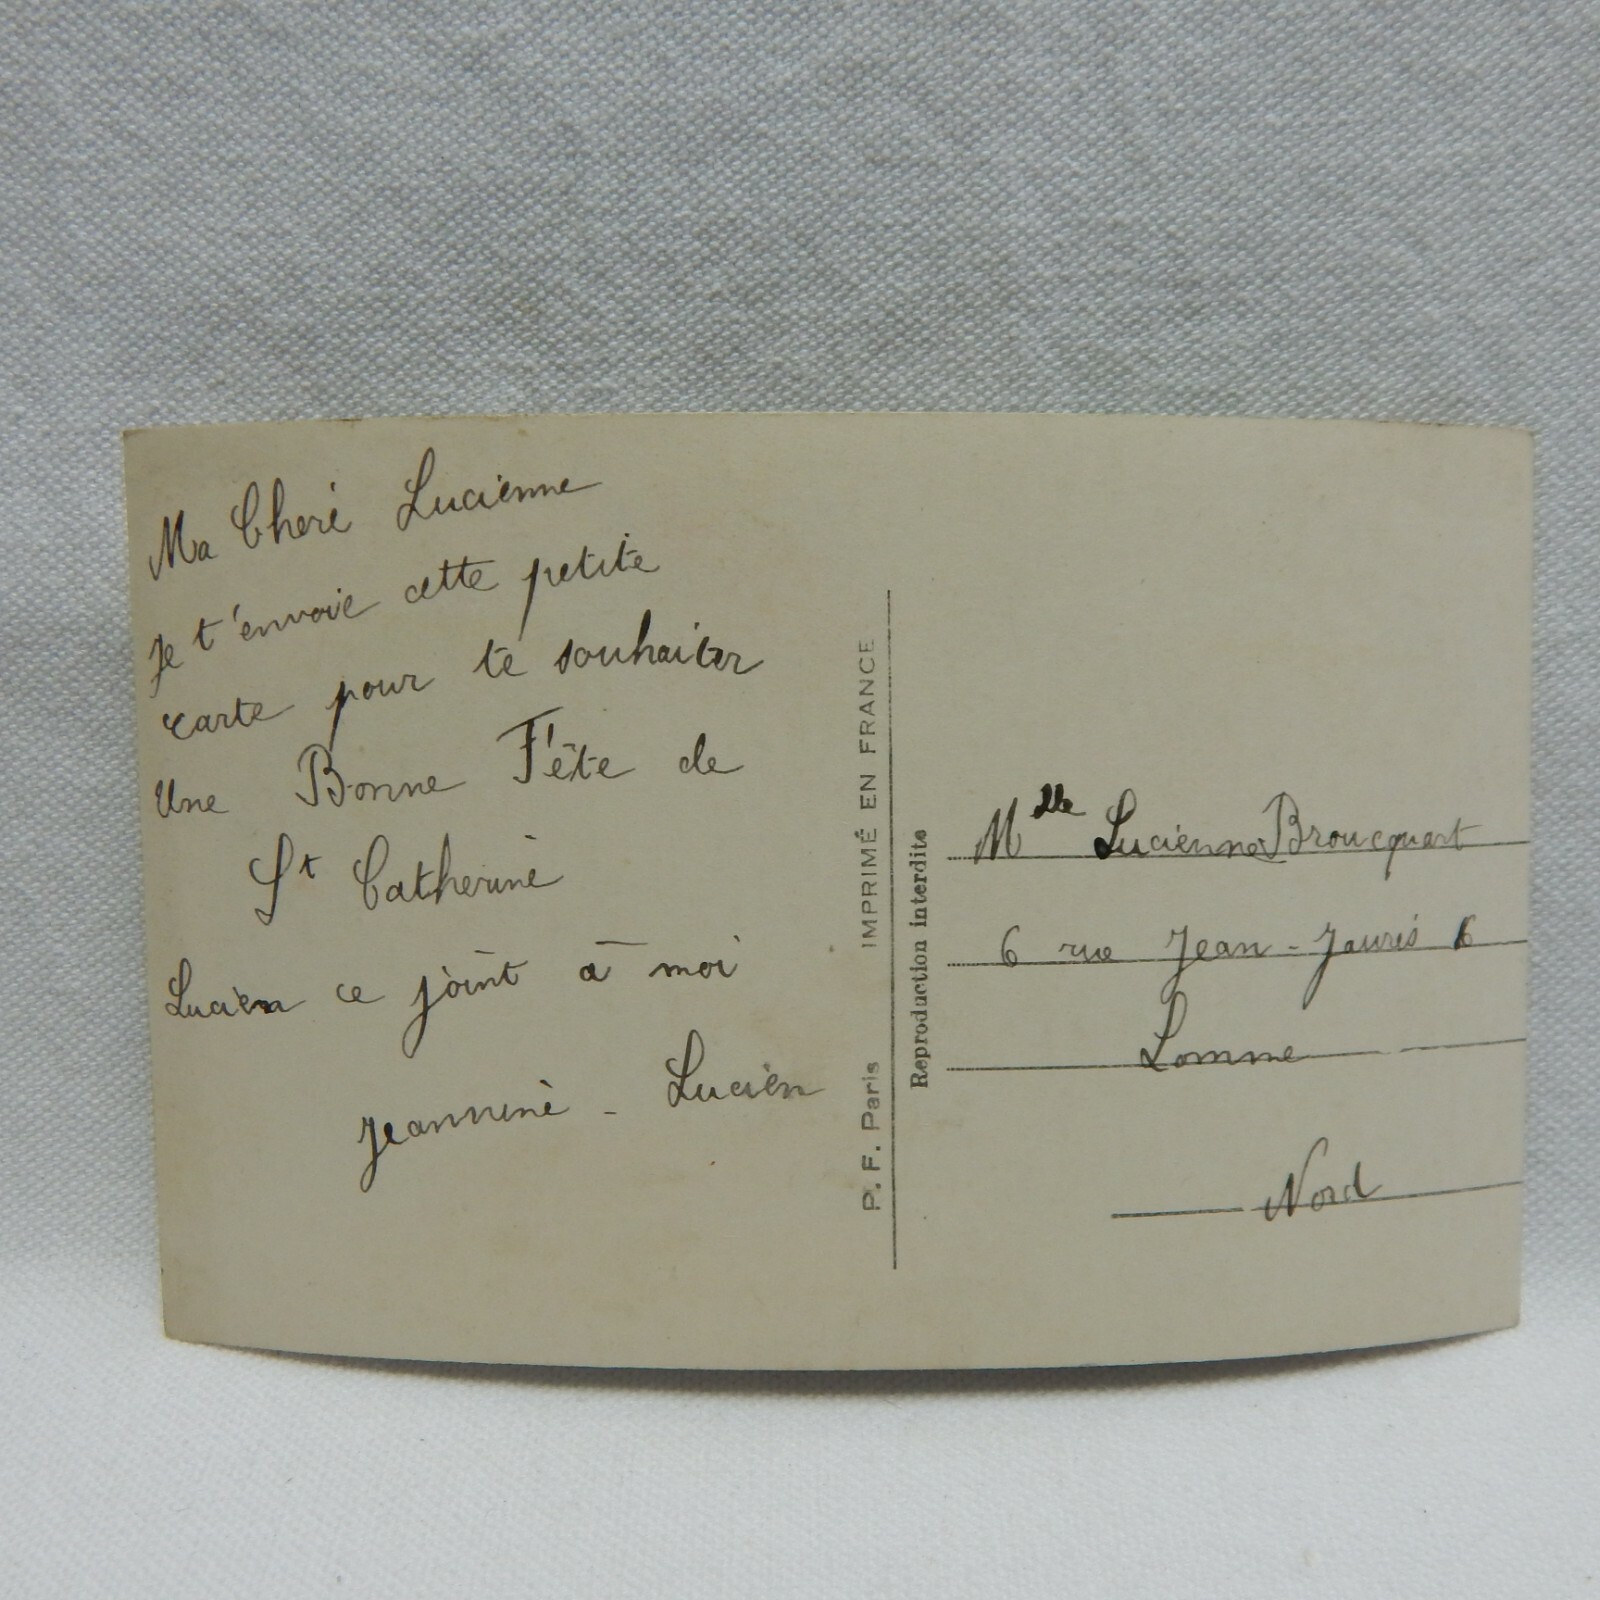 Ma Cheré Lucienne
Je t'envoie cette petite
carte pour te souhaiter
Une Bonne Fête de
St Catherine
Lucien ce joint à moi
Jeannine - Lucien
P. F. Paris IMPRIMÉ EN FRANCE
Reproduction interdite
Mlle Lucienne Broucquart
6 rue Jean-Jaurès 6
Lomme
Nord